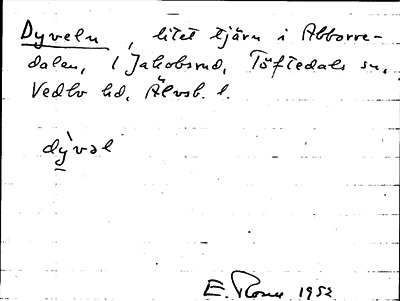 Dyveln, litet tjärn i Abborre-
dalen, / Jakobsrud, Töftedals sn,
Vedbo hd, Älvsb. l.
dỳ̠vəl
E. 1952